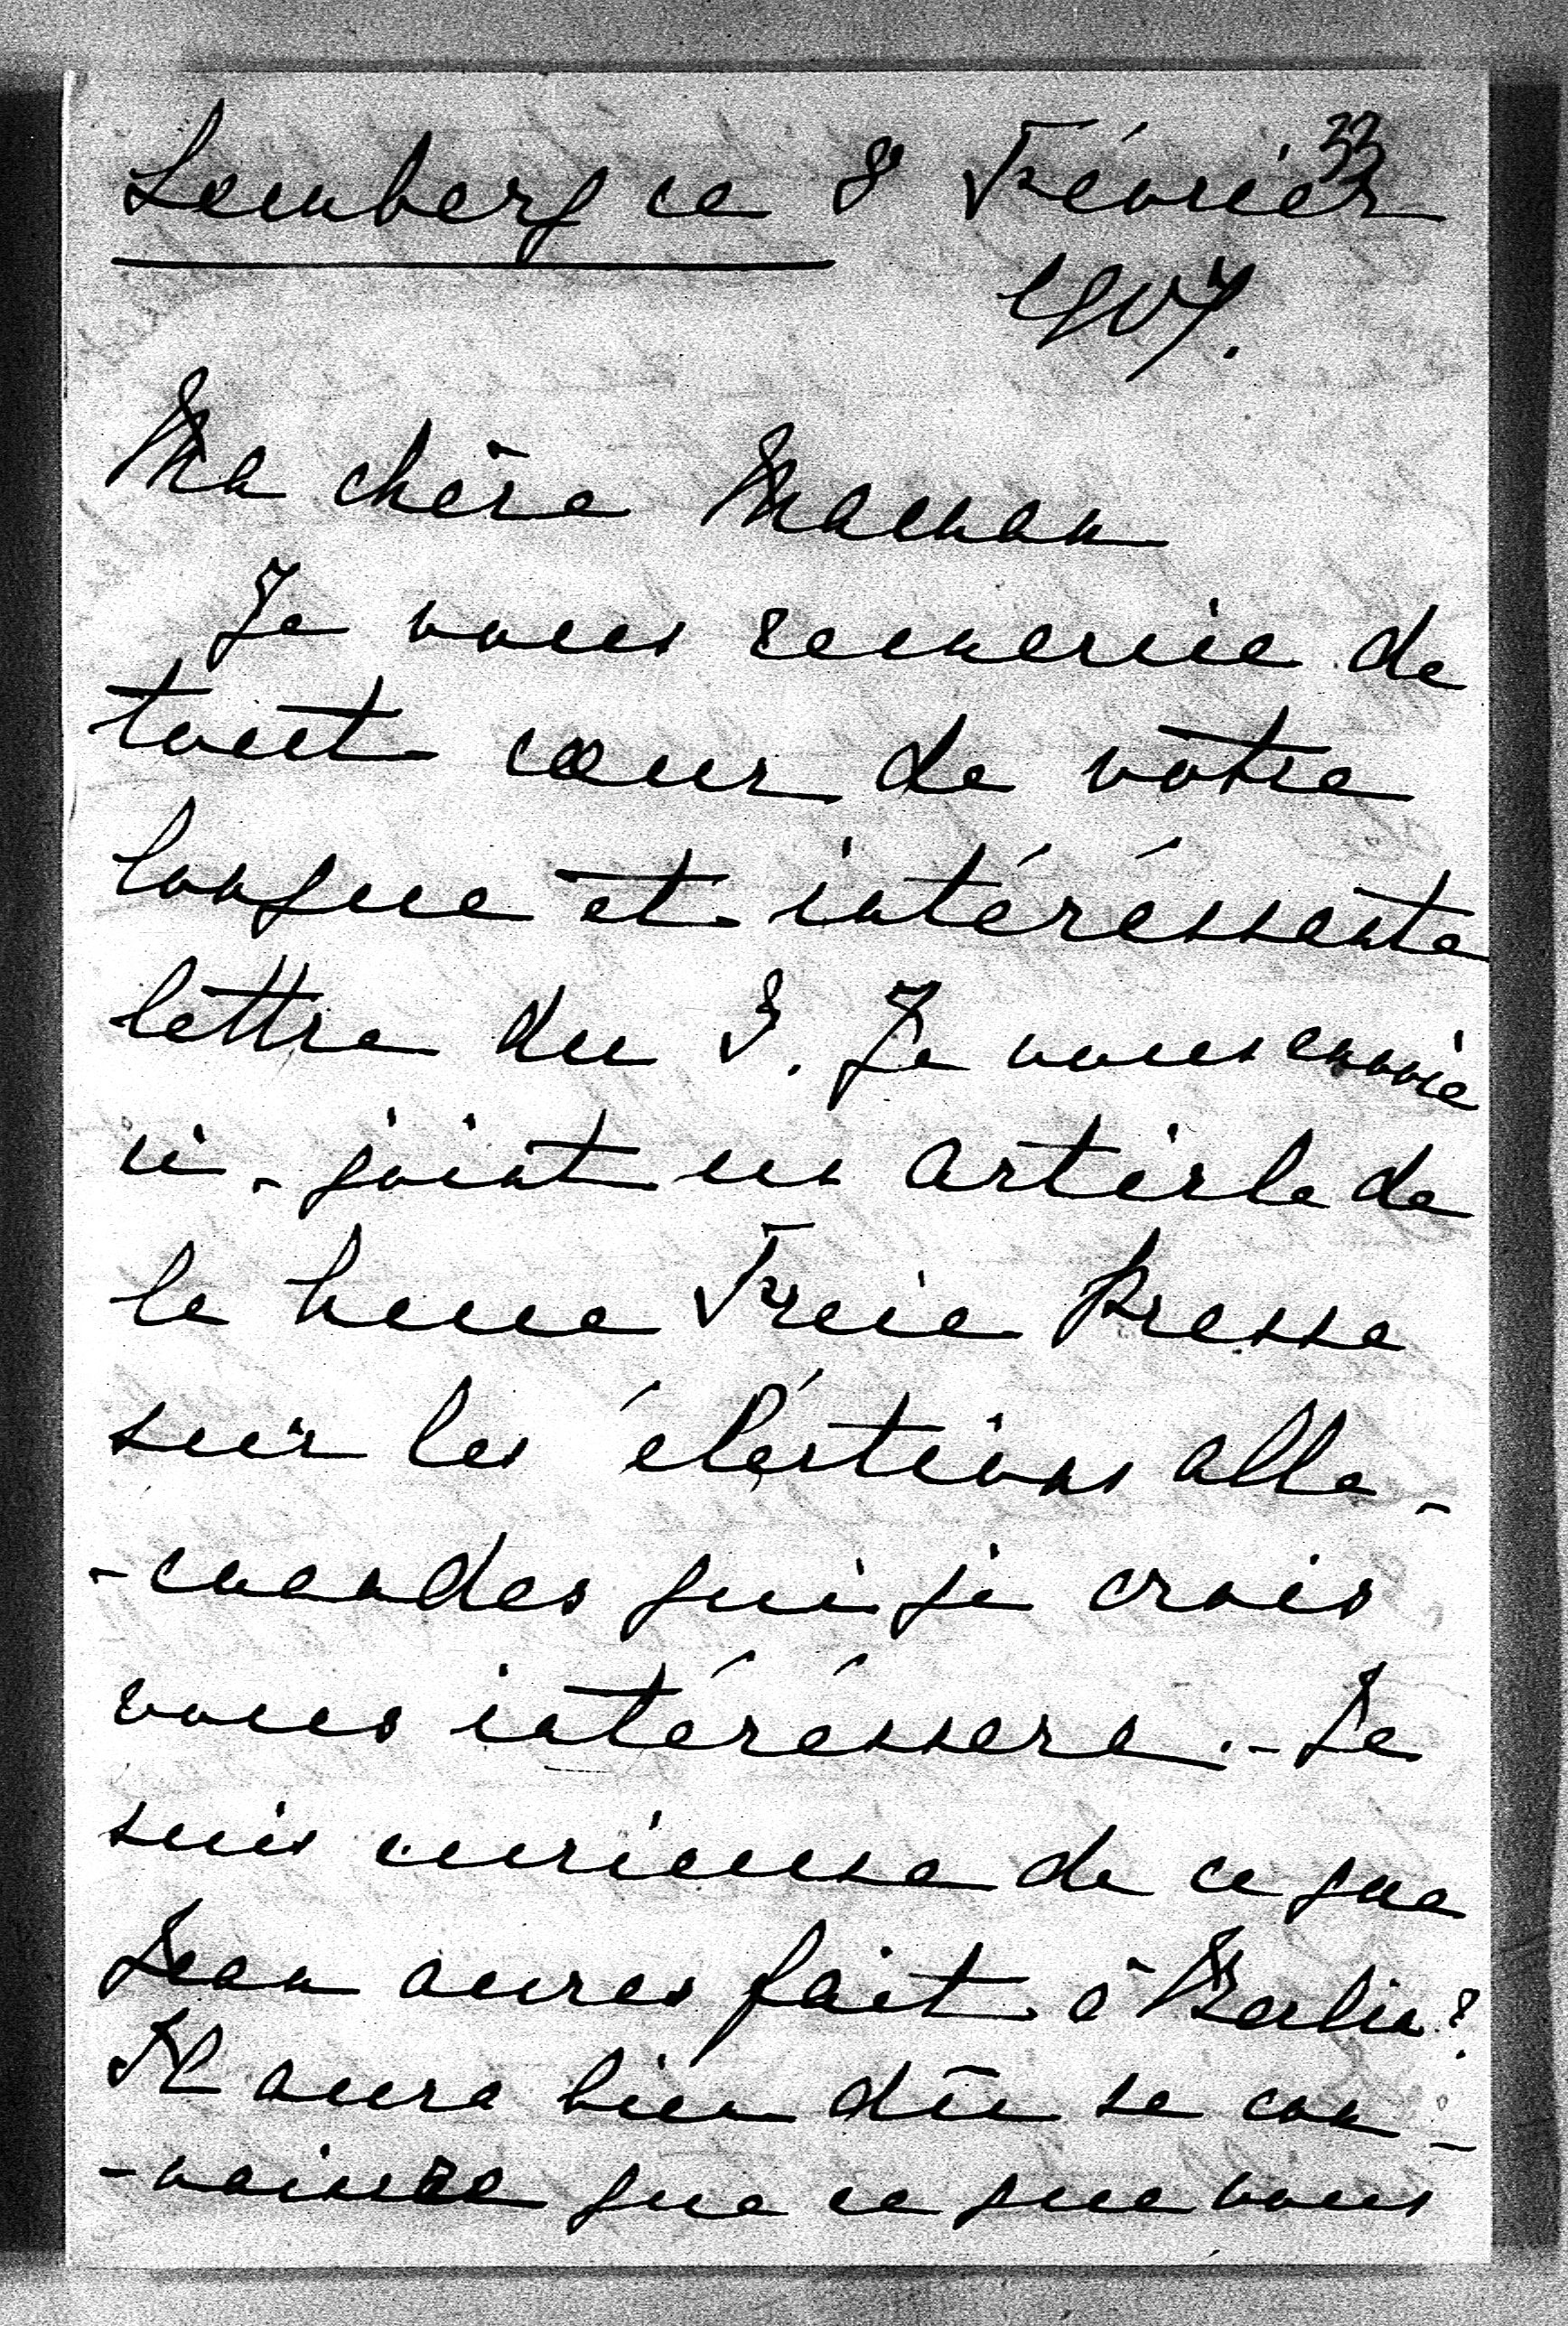 33
Lemberg ce 8 Février
1907.
Ma chère Maman
Je vous remercie de
tout coeur de votre
longue et intéréssante
lettre du 3. Je vous envoie
ci-joint un article de
la Neue Freie Presse
sur les éléctions alle-
-mandes qui je crois
vous intéréssera.- Je
suis curieuse de ce que
Jean aura fait à Berlin?
Il aura bien dû se con-
-vaincre que ce que vous